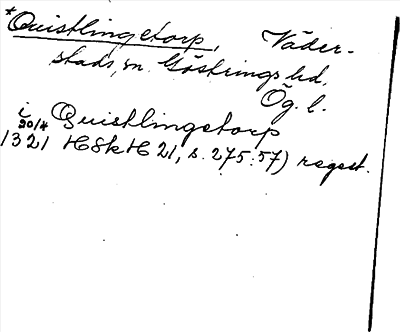 *Quistlingetorp, Väder-
stads, sn. Göstrings hd.
Ög. l.
i Quistlingetorp
20/4
1321 HSkH 21, s. 275:57) regest.